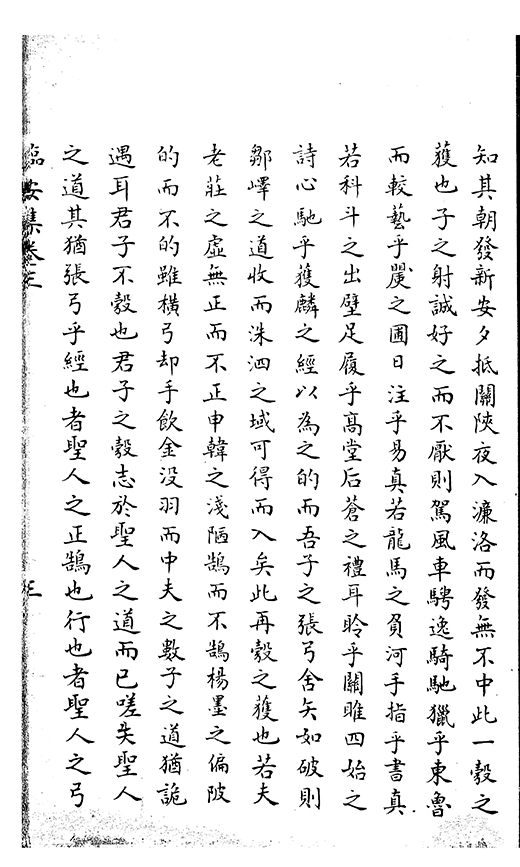 知其朝發新安夕抵關陝夜入濂洛而發無不中此一彀之
獲也子之射誠好之而不厭則駕風車騁逸騎馳獵乎東魯
而較藝乎矍之圃日注乎易真若龍馬之負河手指乎書真
若科斗之出壁足履乎髙堂后蒼之禮耳聆乎關雎四始之
詩心馳乎獲麟之經以為之的而吾子之張弓舍矢如破則
鄒嶧之道收而洙泗之域可得而入矣此再彀之獲也若夫
老莊之虛無正而不正申韓之淺陋鵠而不鵠楊墨之偏陂
的而不的雖横弓却手飲金没羽而中夫之數子之道猶詭
遇耳君子不彀也君子之彀志於聖人之道而已嗟失聖人
之道其猶張弓乎經也者聖人之正鵠也行也者聖人之弓
臨安集卷三
三